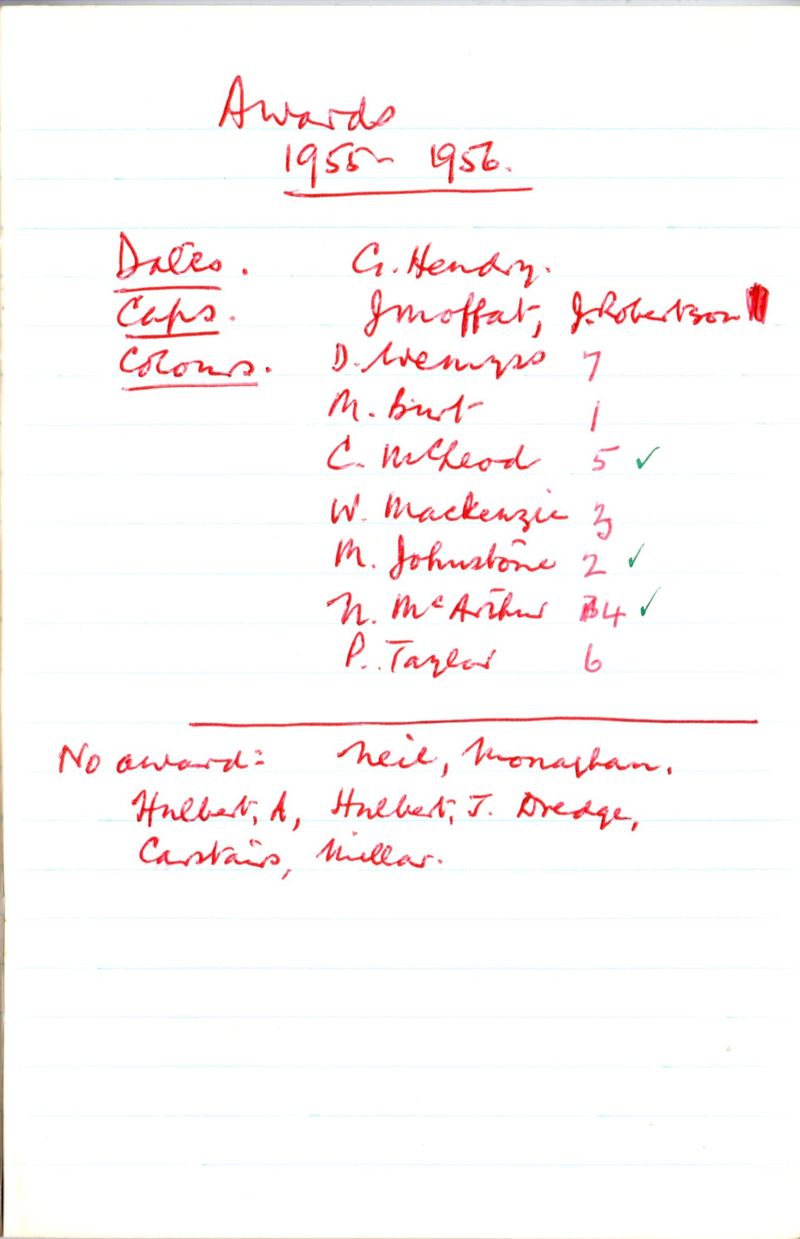 Awards
1955 - 1956.
Dates. G. Hendry.
Caps. J Moffat, J. Robertson
Colours. D. Wemyss 7
M. Burt 1
C. McLeod 5 ✓
W. Mackenzie 3
M. Johnstone 2 ✓
N. McArthur 4 ✓
P. Taylor 6
No award: Neil, Monaghan.
Hulbert, A, Hulbert, J. Dredge,
Carstairs, Millar.